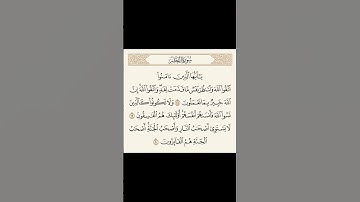 سُورَةُ الحَشْرِ
يَٰٓأَيُّهَا ٱلَّذِينَ ءَامَنُوا۟
ٱتَّقُوا۟ ٱللَّهَ وَلْتَنظُرْ نَفْسٌ مَّا قَدَّمَتْ لِغَدٍ وَٱتَّقُوا۟ ٱللَّهَ إِنَّ
ٱللَّهَ خَبِيرٌۢ بِمَا تَعْمَلُونَ ١٨ وَلَا تَكُونُوا۟ كَٱلَّذِينَ
نَسُوا۟ ٱللَّهَ فَأَنسَىٰهُمْ أَنفُسَهُمْ أُو۟لَٰٓئِكَ هُمُ ٱلْفَٰسِقُونَ ١٩
لَا يَسْتَوِىٓ أَصْحَٰبُ ٱلنَّارِ وَأَصْحَٰبُ ٱلْجَنَّةِ أَصْحَٰبُ
ٱلْجَنَّةِ هُمُ ٱلْفَآئِزُونَ ٢٠